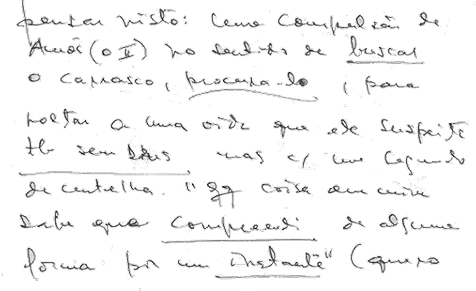 pensar nisto: uma compulsão de
Amós (o II) no sentido de buscar
o carrasco, procura-lo, para
voltar a uma vida que ele suspeita
tb sem Deus, mas c/ um segundo
de centelha. "qq coisa em mim
sabe que compreendi de alguma
forma por um instante" (quero